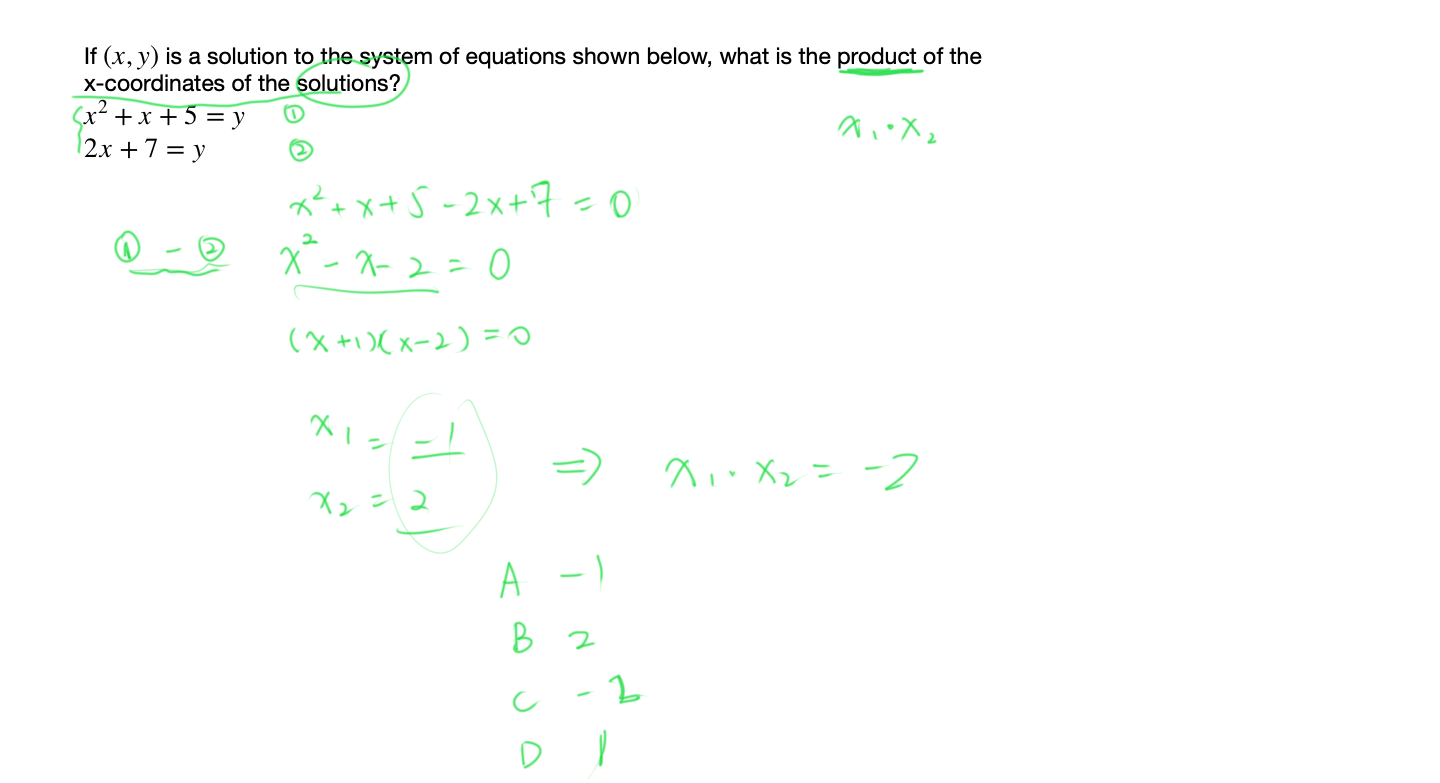 If (x, y) is a solution to the system of equations shown below, what is the product of the
x-coordinates of the solutions?
x² + x + 5 = y ①
x₁ · x₂
2x + 7 = y ②
x² + x + 5 - 2x + 7 = 0
① - ② x² - x - 2 = 0
(x + 1)(x - 2) = 0
x₁ = -1
⇒ x₁ · x₂ = -2
x₂ = 2
A -1
B 2
C -2
D 1